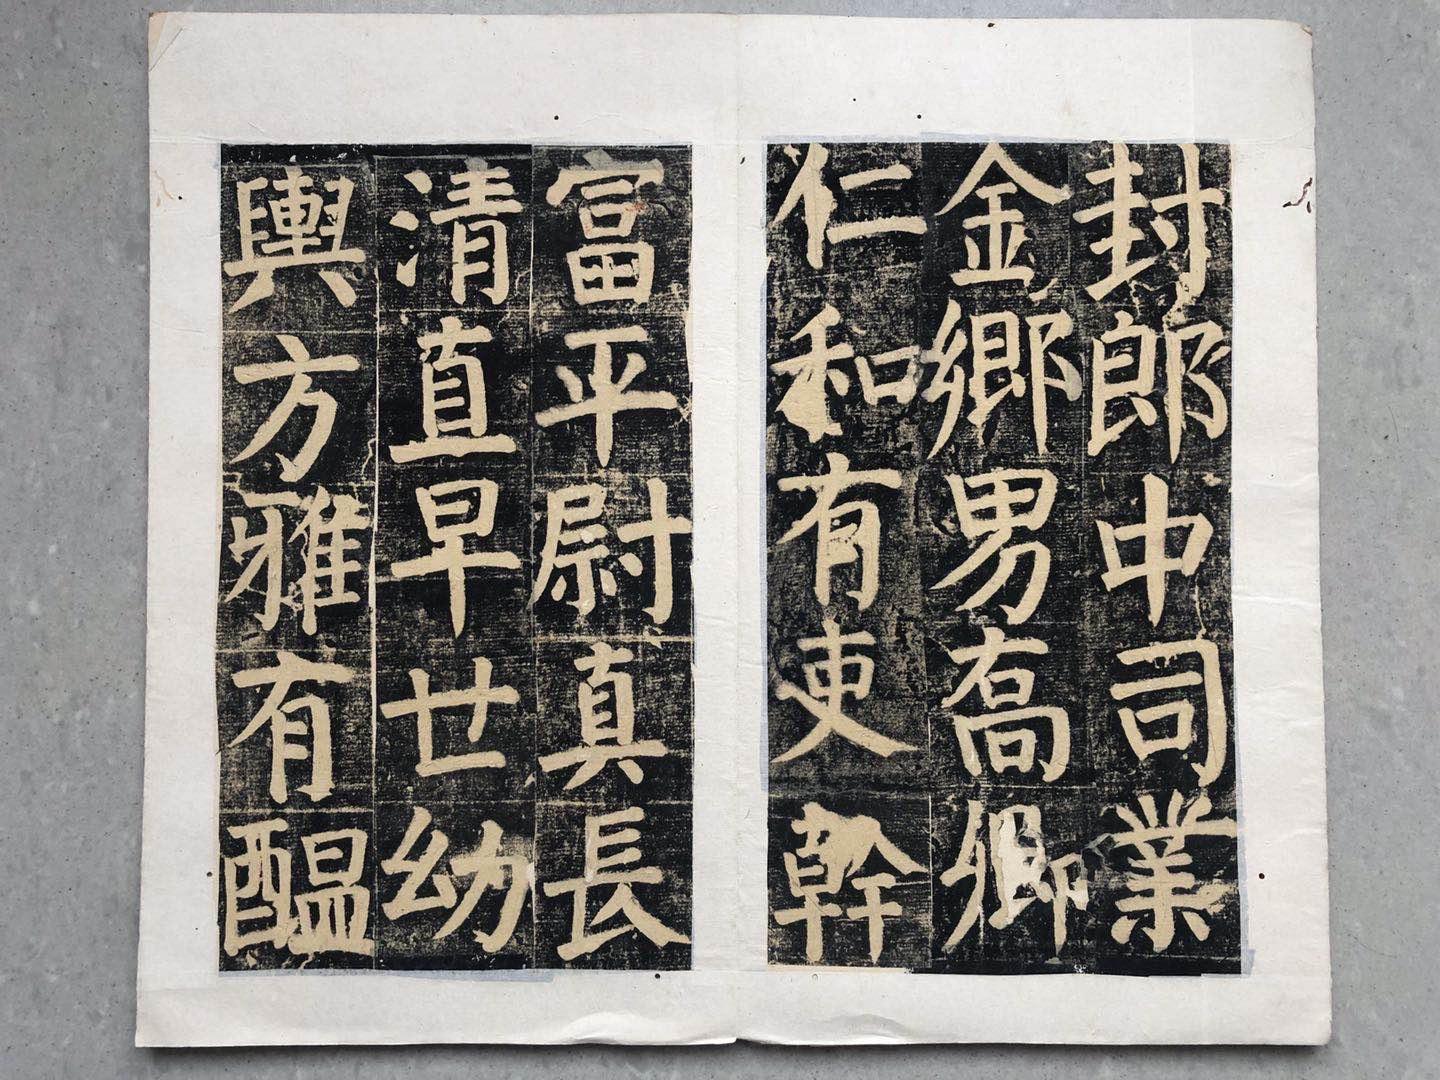 封郎中司業
金鄉男喬卿
仁和有吏幹
富平尉真長
清直早世幼
輿方雅有醖